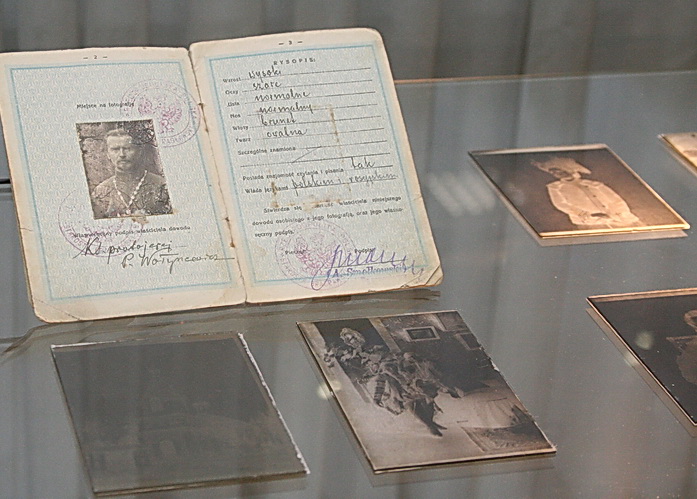 — 2 —
Miejsce na fotografję
Własnoręczny podpis właściciela dowodu
Ks protojerej
P. Wołyncewicz
— 3 —
RYSOPIS:
Wzrost wysoki
Oczy szare
Usta normalne
Nos normalny
Włosy brunet
Twarz owalna
Szczególne znamiona
Posiada znajomość czytania i pisania tak
Włada językami polskim i rosyjskim
Stwierdza się tożsamość właściciela niniejszego
dowodu osobistego z jego fotografją, oraz jego własno-
ręczny podpis.
Pieczęć Podpis